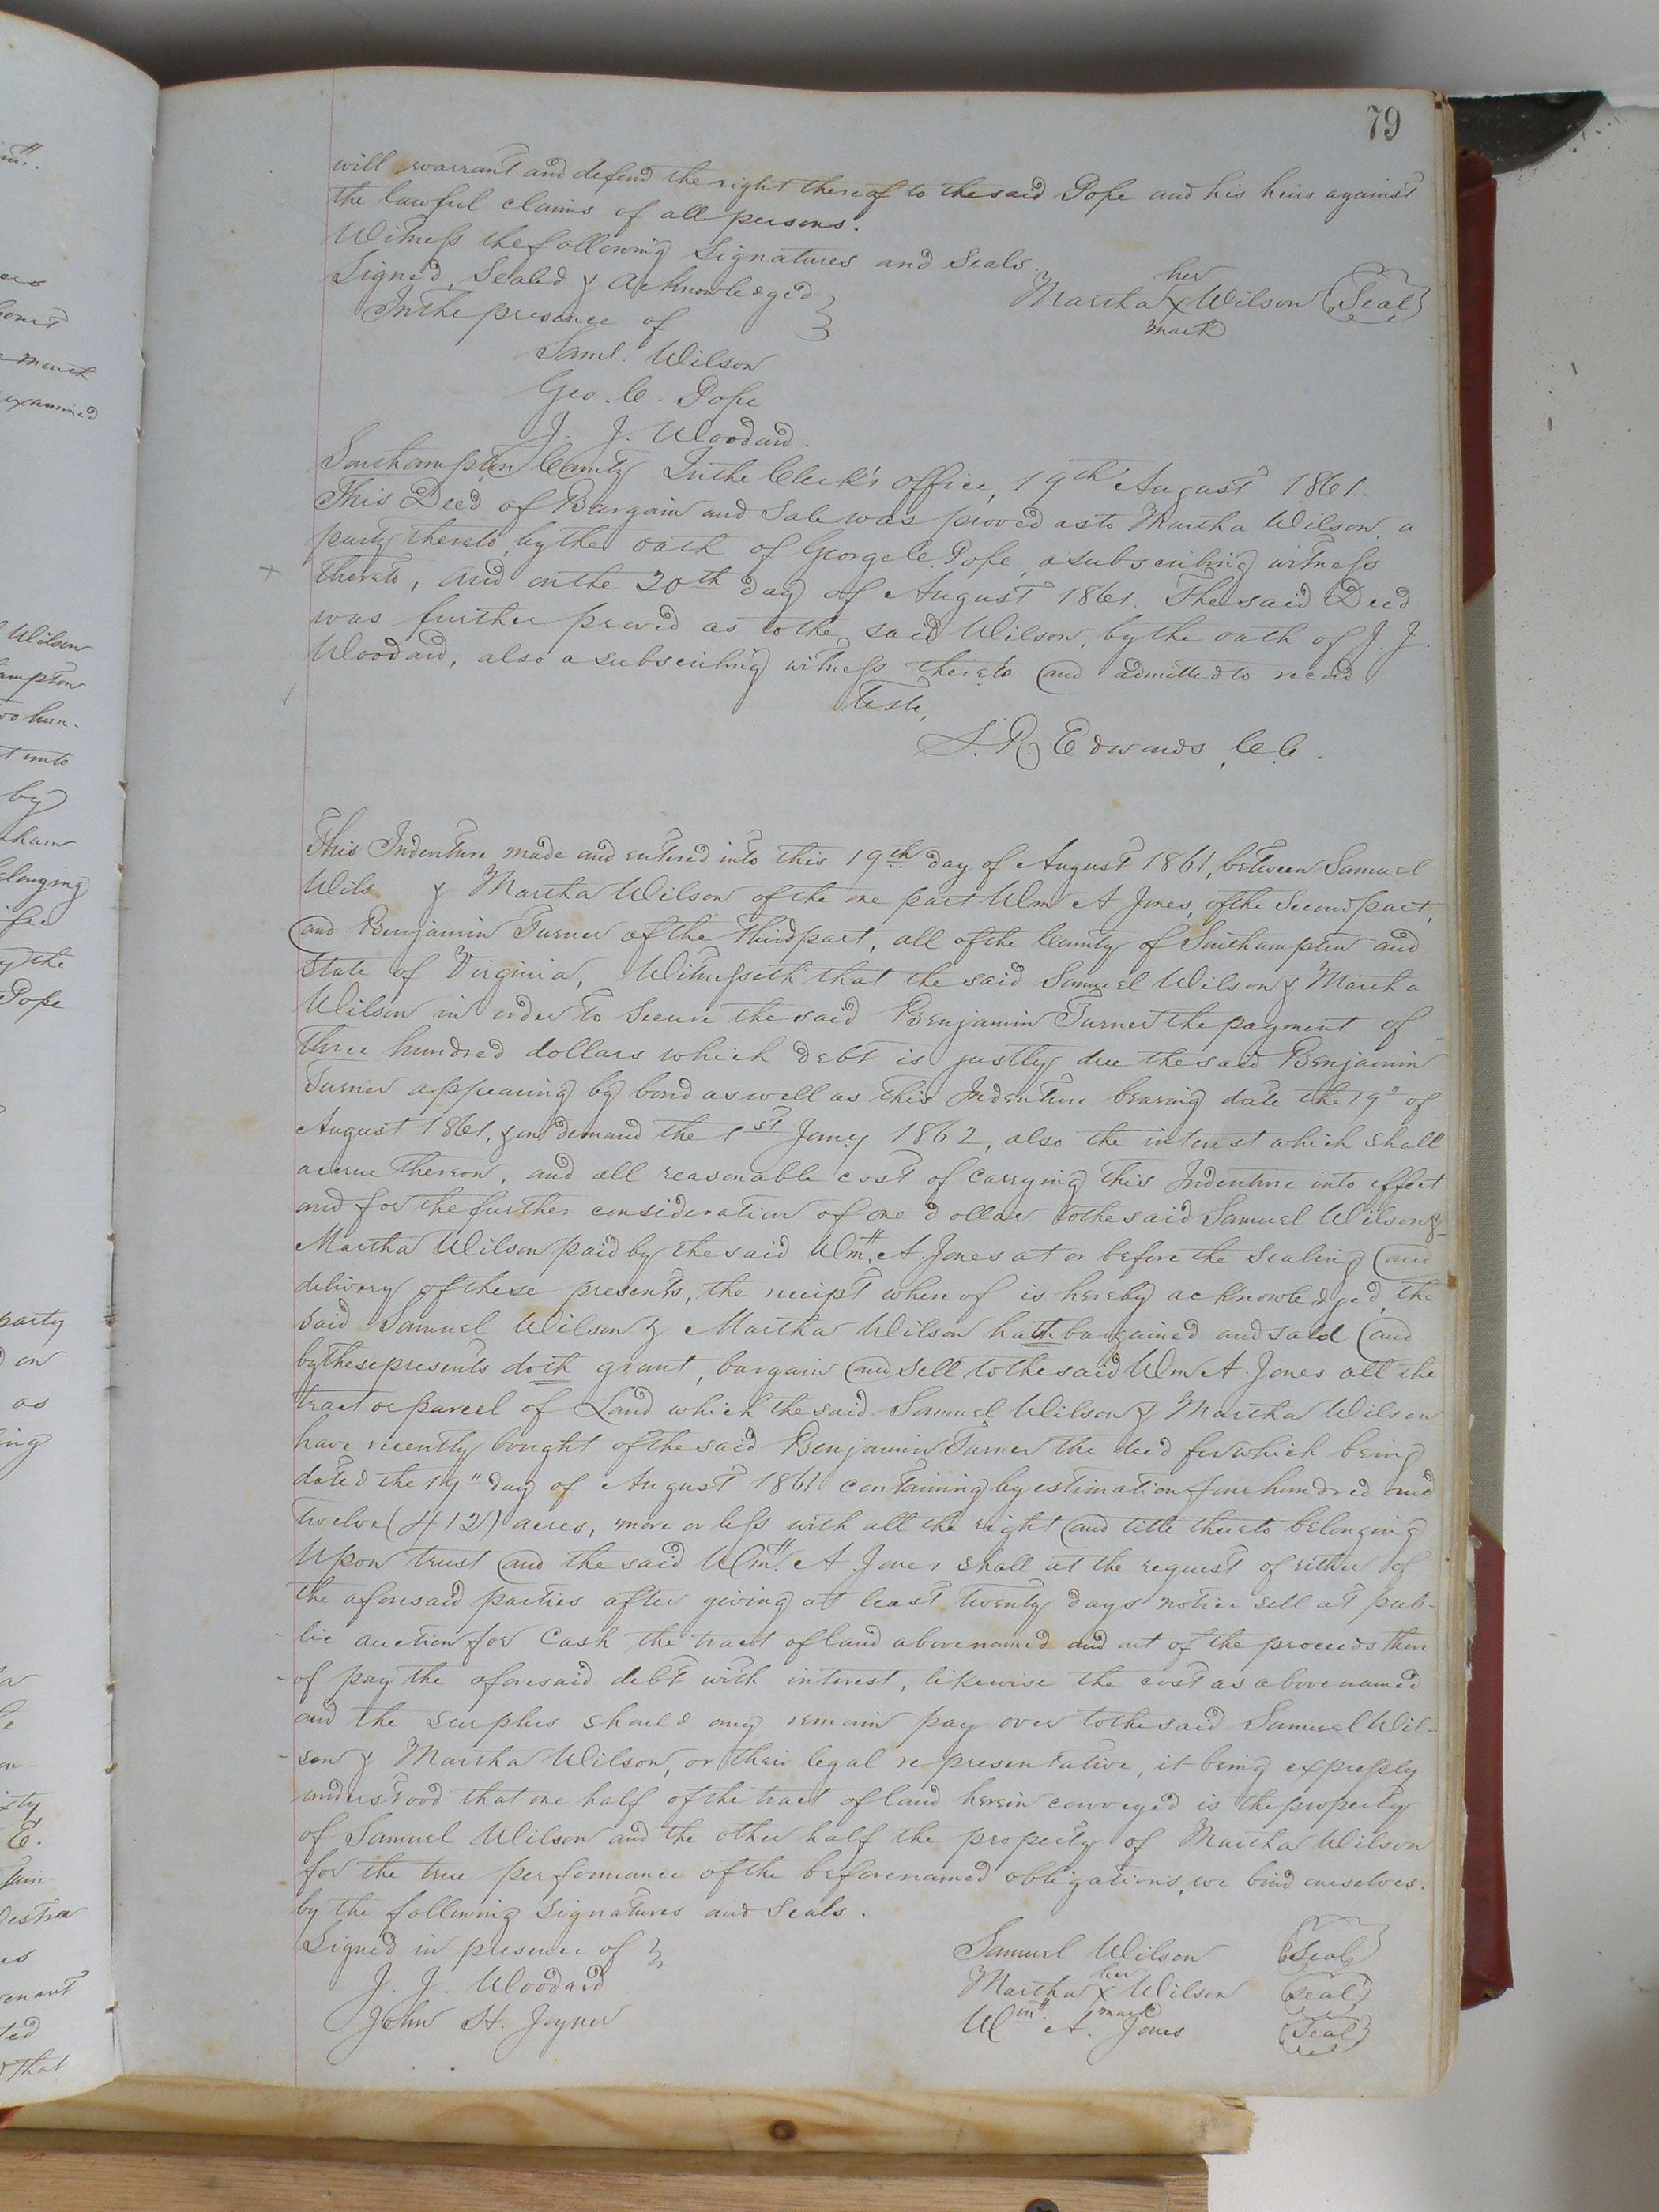 79
will warrant and defend the right thereof to the said Pope and his heirs against
the lawful claims of all persons.
Witness the following Signatures and Seals
Signed, Sealed & Acknowledged
In the presence of
her
Martha X Wilson (Seal)
mark
Saml. Wilson
Geo. C. Pope
J. J. Woodard.
Southampton County In the Clerk's office, 19th August 1861.
This Deed of Bargain and Sale was proved as to Martha Wilson, a
party thereto, by the oath of George C. Pope, a subscribing witness
thereto, And on the 20th day of August 1861. The said Deed
was further proved as to the said Wilson, by the oath of J. J.
Woodard, also a subscribing witness thereto and admitted to record
Teste,
L. R. Edwards, C.C.
This Indenture made and entered into this 19th day of August 1861, between Samuel
Wils & Martha Wilson of the one part Wm A Jones, of the Second part,
and Benjamin Turner of the third part, all of the County of Southampton and
State of Virginia, Witnesseth that the said Samuel Wilson & Martha
Wilson in order to Secure the said Benjamin Turner the payment of
three hundred dollars which debt is justly due the said Benjamin
Turner appearing by bond as well as this Indenture bearing date the 19" of
August 1861, & on demand the 1st Jany 1862, also the interest which shall
accrue thereon, and all reasonable cost of carrying this Indenture into effect
and for the further consideration of one dollar to the said Samuel Wilson &
Martha Wilson paid by the said Wm. A. Jones at or before the Sealing and
delivery of these presents, the receipt whereof is hereby acknowledged, the
said Samuel Wilson & Martha Wilson hath bargained and sold and
by these presents doth grant, bargain and sell to the said Wm A. Jones all the
tract or parcel of Land which the said Samuel Wilson & Martha Wilson
have recently bought of the said Benjamin Turner the deed for which being
dated the 19" day of August 1861 containing by estimation four hundred and
twelve (412) acres, more or less with all the right and title thereto belonging
Upon trust and the said Wm. A. Jones shall at the request of either of
the aforesaid parties after giving at least twenty days notice sell at pub-
lic auction for Cash the tract of land above named and out of the proceeds there
of pay the aforesaid debt with interest, likewise the cost as above named
and the surplus should any remain pay over to the said Samuel Wil-
son & Martha Wilson, or their legal representative, it being expressly
understood that one half of the tract of land herein conveyed is the property
of Samuel Wilson and the other half the property of Martha Wilson
for the true performance of the beforenamed obligations, we bind ourselves.
by the following Signatures and Seals.
Signed in presence of
J. J. Woodard
John H. Joyner
Samuel Wilson (Seal)
her
Martha X Wilson (Seal)
mark
Wm. A. Jones (Seal)
examined
Wilson
by
elonging
y the
Pope
party
on
as
ing
that